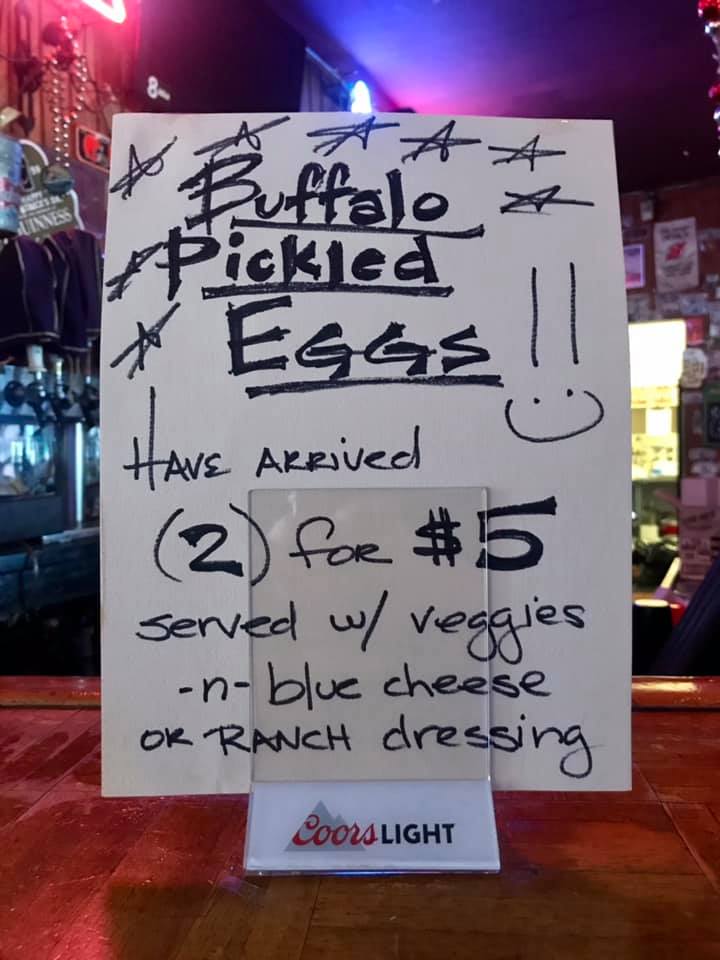 8
GUINNESS
Buffalo
Pickled
EGGS !!
HAVE ARRIVED
(2) for $5
served w/ veggies
-n- blue cheese
OR RANCH dressing
Coors LIGHT